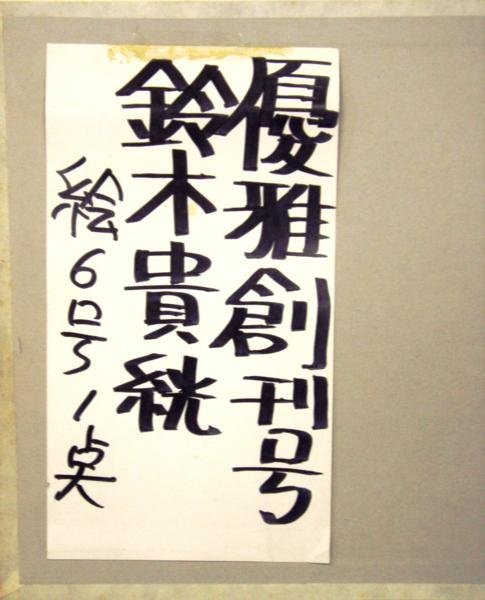 優雅創刊号
鈴木貴絖
絵6号1点